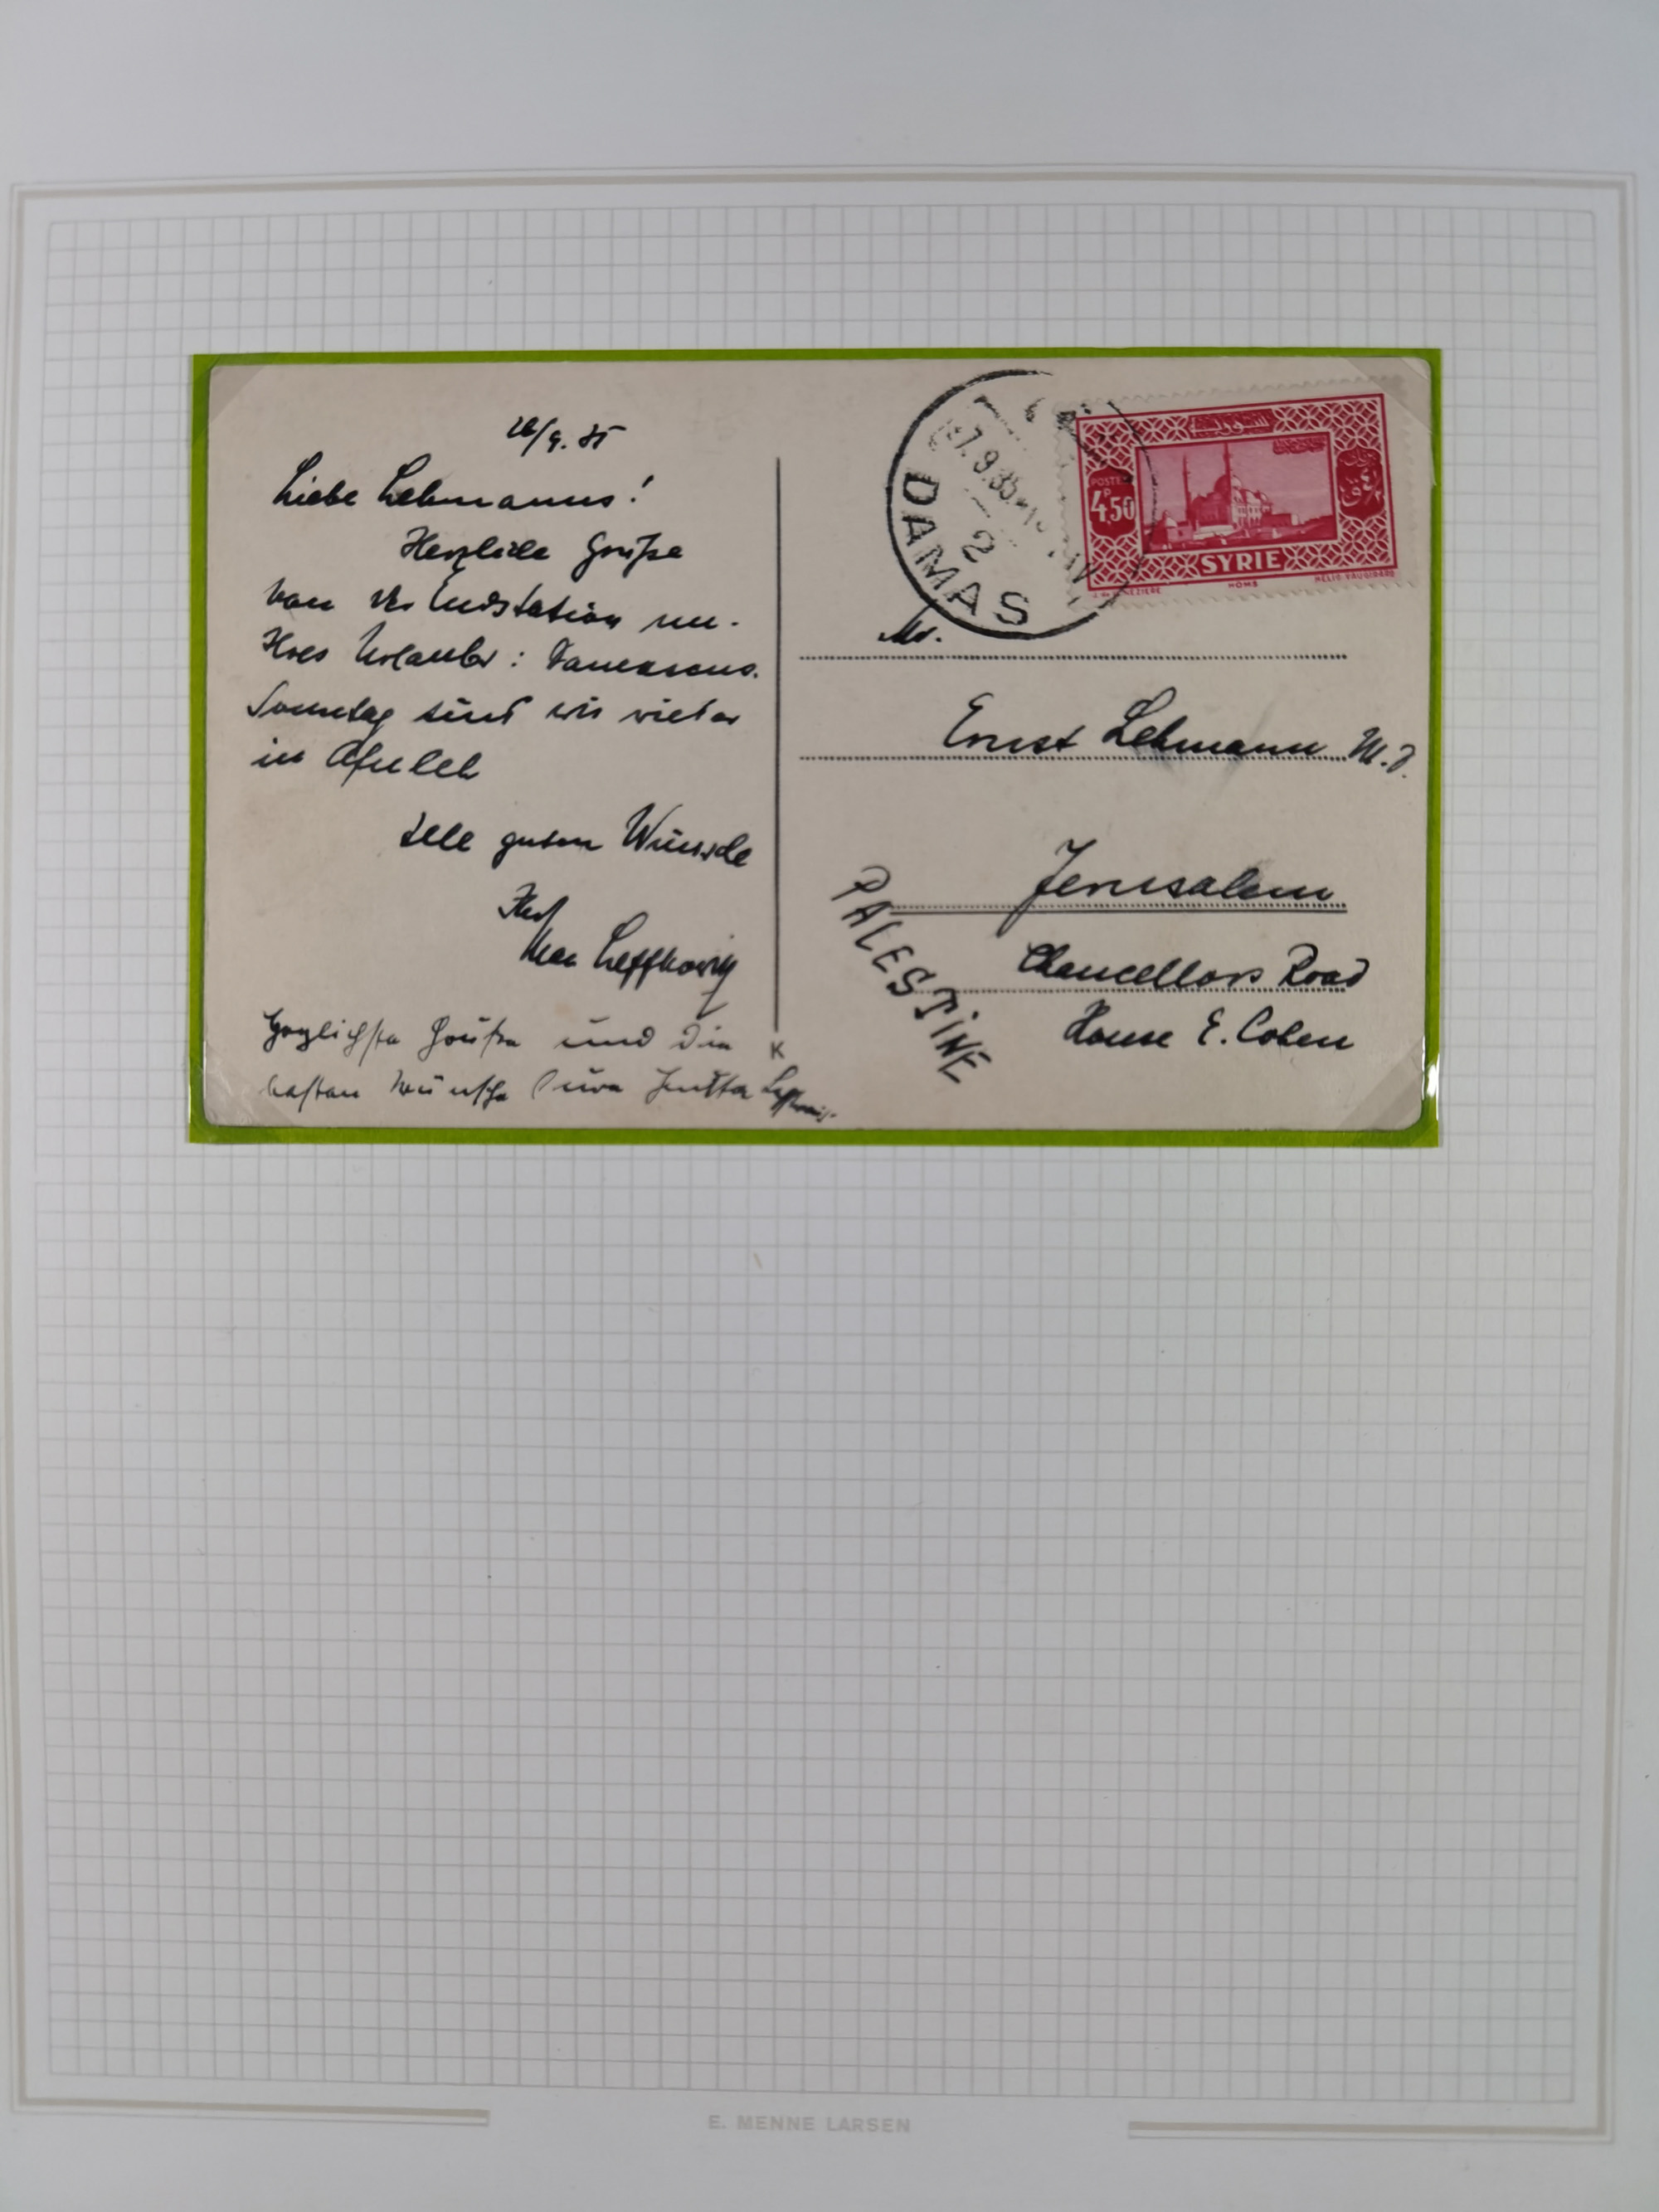 26/9. 35
Liebe Lehmanns!
Herzliche Grüße
von der Endstation un-
seres Urlaubs: Damascus.
Sonntag sind wir wieder
in Afuleh
Alle guten Wünsche
Herzlichste Grüße und die
besten Wünsche Eure Jutta
K
7.9.35
2
DAMAS
سوريا
POSTES
4P,50
SYRIE
HOMS
HELIO VAUGIRARD
Mr.
Ernst Lehmann M.J.
Jerusalem
Chancellors Road
House E. Cohen
PALESTINE
E. MENNE LARSEN